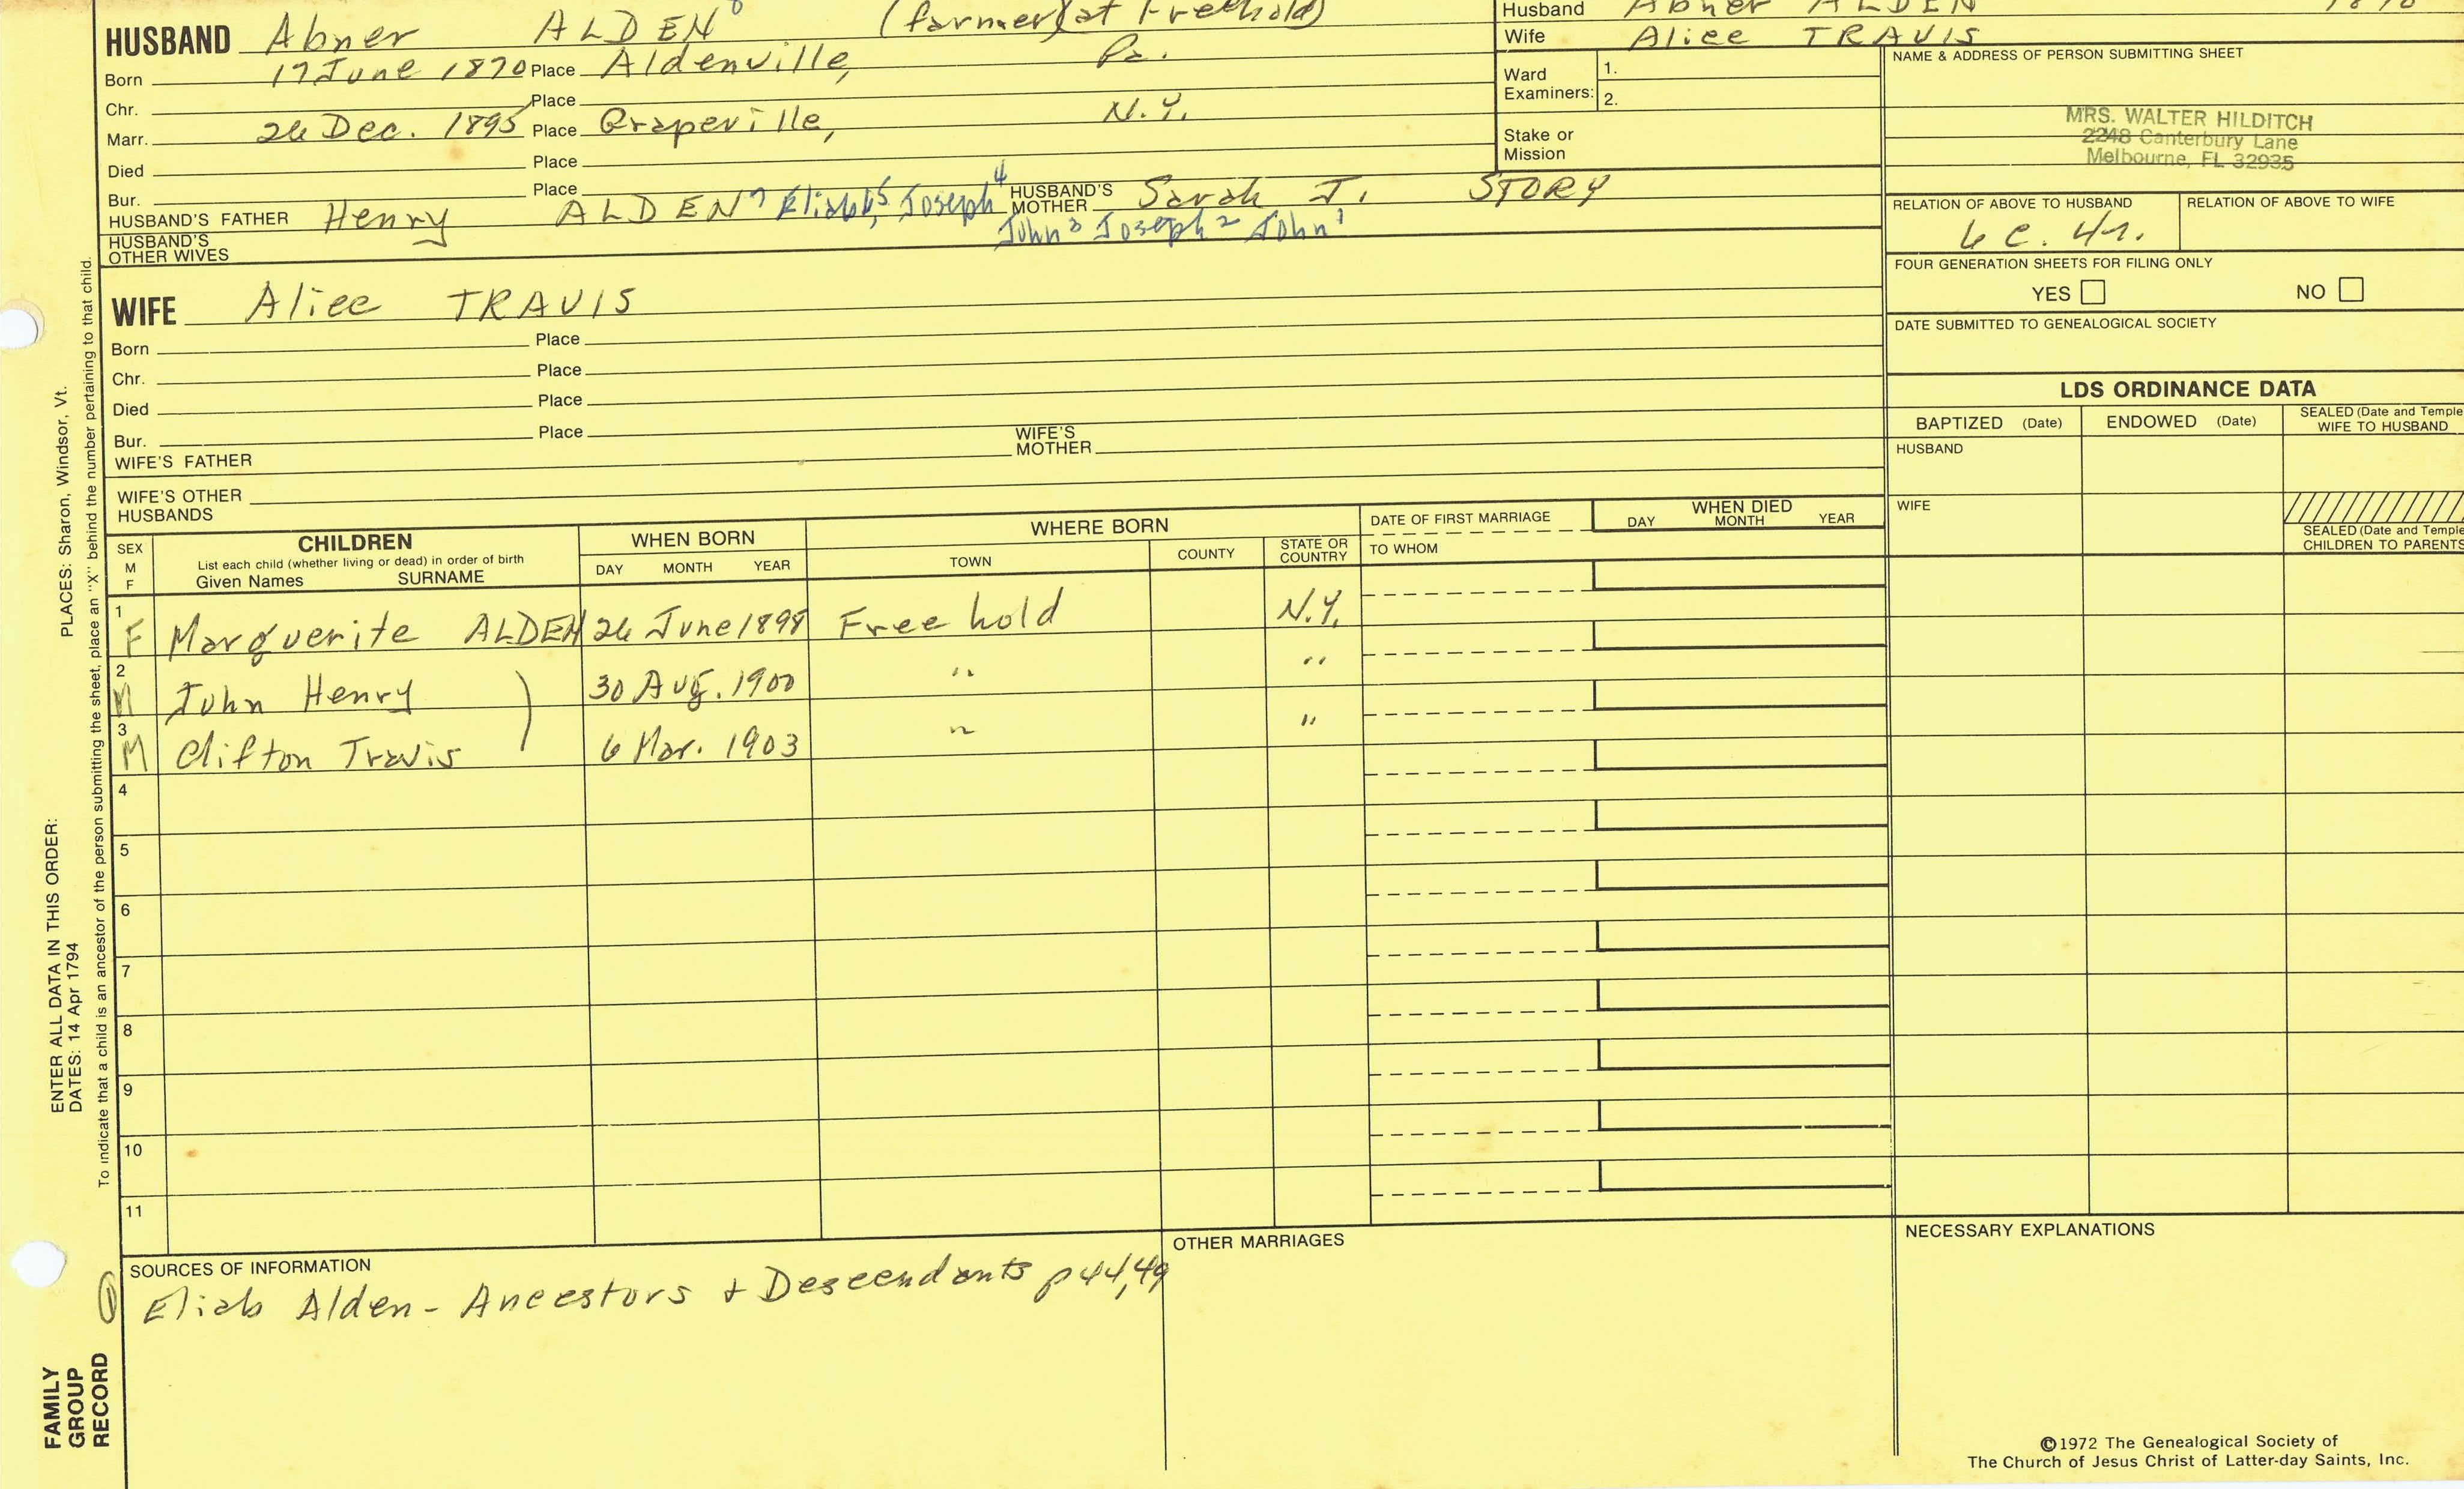 HUSBAND Abner ALDEN 8 (farmer) (at Freehold)
Born 17 June 1870 Place Aldenville, Pa.
Chr. Place
Marr. 26 Dec. 1895 Place Grapeville, N.Y.
Died Place
Bur. Place
HUSBAND'S FATHER Henry ALDEN 7 Eliab 6,5 Joseph 4 HUSBAND'S MOTHER Sarah J. STORY
John 3 Joseph 2 John 1
HUSBAND'S OTHER WIVES
Husband Abner ALDEN 1870
Wife Alice TRAVIS
Ward Examiners: 1.
2.
Stake or Mission
NAME & ADDRESS OF PERSON SUBMITTING SHEET
MRS. WALTER HILDITCH
2248 Canterbury Lane
Melbourne, FL 32935
RELATION OF ABOVE TO HUSBAND RELATION OF ABOVE TO WIFE
6 c. 4r.
FOUR GENERATION SHEETS FOR FILING ONLY
YES NO
DATE SUBMITTED TO GENEALOGICAL SOCIETY
WIFE Alice TRAVIS
Born Place
Chr. Place
Died Place
Bur. Place
WIFE'S FATHER WIFE'S MOTHER
WIFE'S OTHER HUSBANDS
LDS ORDINANCE DATA
BAPTIZED (Date) ENDOWED (Date) SEALED (Date and Temple
WIFE TO HUSBAND
HUSBAND
WIFE
SEALED (Date and Temple
CHILDREN TO PARENTS
SEX M F
CHILDREN
List each child (whether living or dead) in order of birth
Given Names SURNAME
WHEN BORN
DAY MONTH YEAR
WHERE BORN
TOWN COUNTY STATE OR COUNTRY
DATE OF FIRST MARRIAGE
TO WHOM
WHEN DIED
DAY MONTH YEAR
1 F Marguerite ALDEN 26 June 1898 Freehold N.Y.
2 M John Henry ) 30 Aug. 1900 " "
3 M Clifton Travis 6 Mar. 1903 " "
4
5
6
7
8
9
10
11
SOURCES OF INFORMATION
① Eliab Alden - Ancestors + Descendants p 44,49
OTHER MARRIAGES
NECESSARY EXPLANATIONS
©1972 The Genealogical Society of
The Church of Jesus Christ of Latter-day Saints, Inc.
PLACES: Sharon, Windsor, Vt.
To indicate that a child is an ancestor of the person submitting the sheet, place an "X" behind the number pertaining to that child.
ENTER ALL DATA IN THIS ORDER:
DATES: 14 Apr 1794
FAMILY
GROUP
RECORD